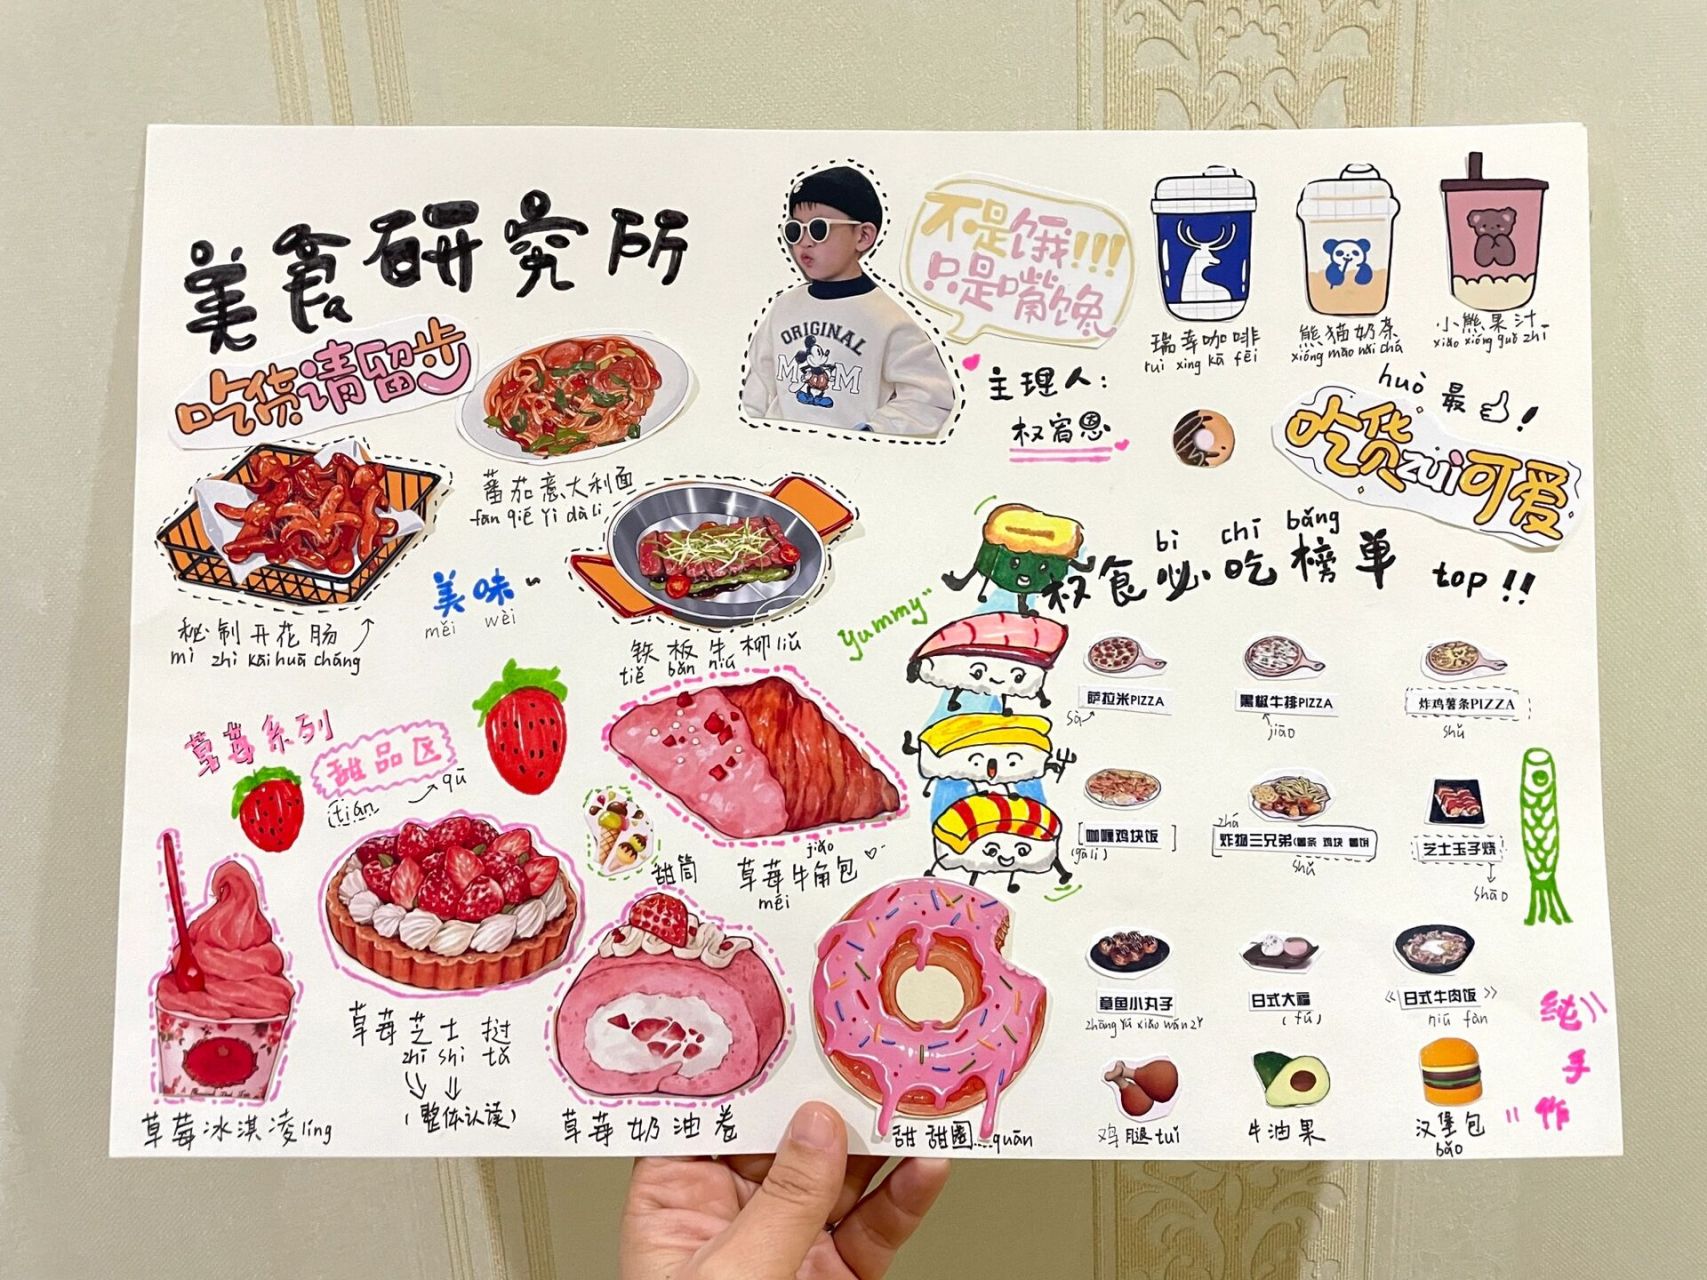 美食研究所
吃货请留步
ORIGINAL
M M
不是饿!!!
只是嘴馋
主理人:
权宥恩
瑞幸咖啡
ruì xìng kā fēi
熊猫奶茶
xióng māo nǎi chá
小熊果汁
xiǎo xióng guǒ zhī
huò 最 !
吃货zui可爱
蕃茄意大利面
fān qié yì dà lì
秘制开花肠
mì zhì kāi huā cháng
美味~
měi wèi
铁板牛柳liǔ
tiě bǎn niú
yummy
bì chī bǎng
权食必吃榜单 top!!
萨拉米PIZZA
sà
黑椒牛排PIZZA
jiāo
炸鸡薯条PIZZA
shǔ
咖喱鸡块饭
(gā lí)
zhá
炸物三兄弟(薯条 鸡块 薯饼
shǔ
芝士玉子烧
shāo
章鱼小丸子
zhāng yú xiǎo wán zǐ
日式大福
(fú)
《日式牛肉饭》
niú fàn
鸡腿tuǐ
牛油果
汉堡包
bǎo
纯
手
作
草莓系列
甜品区
tián qū
甜筒
jiǎo
草莓牛角包
méi
草莓冰淇凌líng
草莓芝士挞
zhī shì tǎ
(整体认读)
草莓奶油卷
甜甜圈...quān